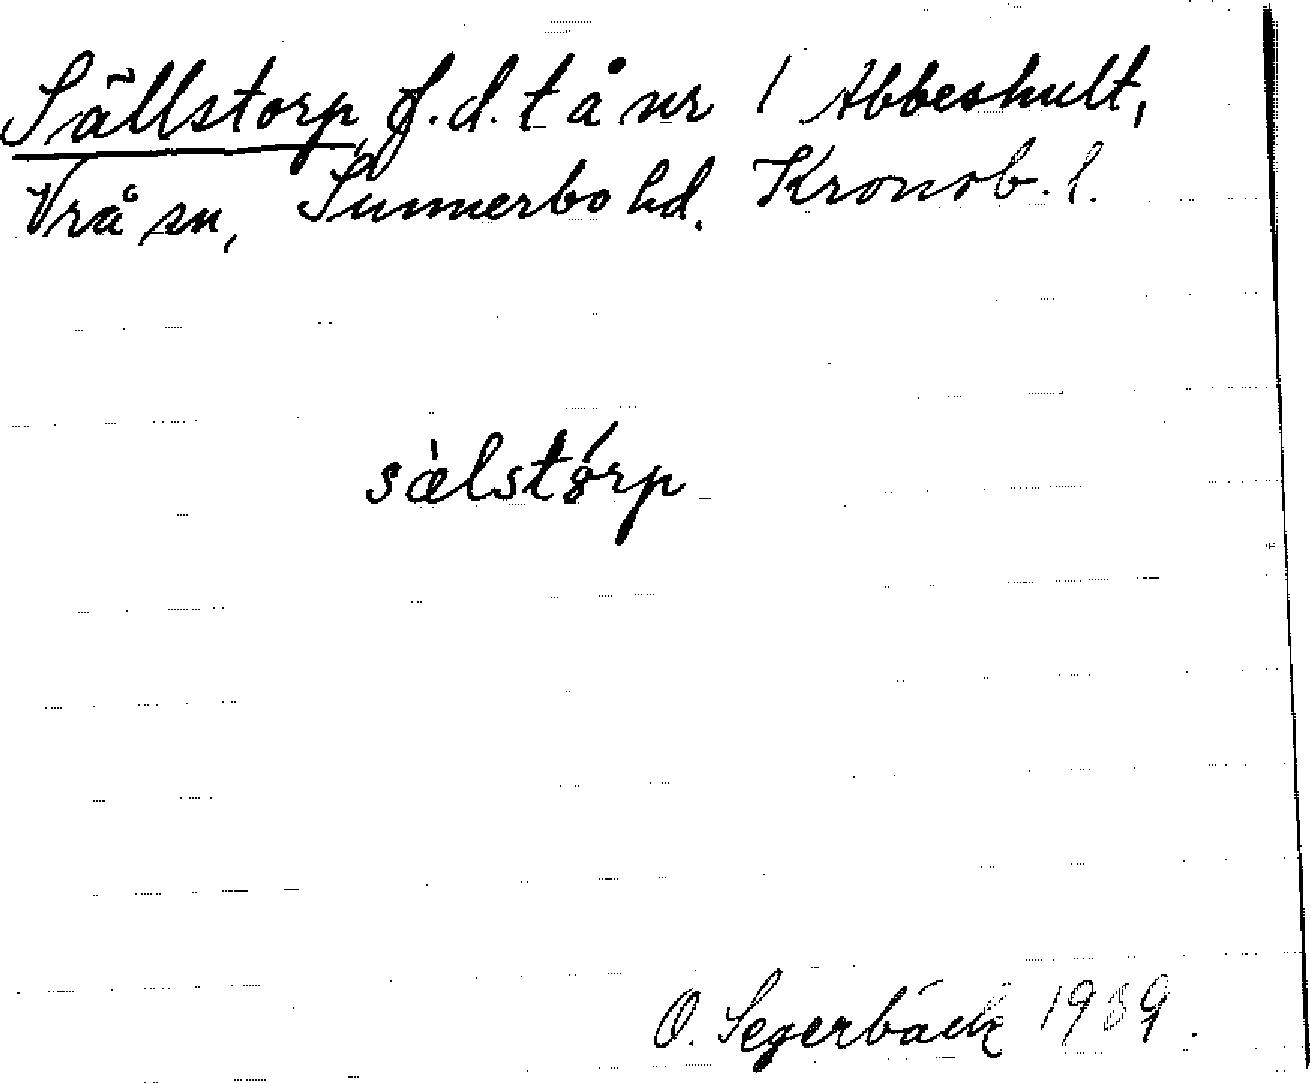 Sällstorp, f.d. t å nr 1 Abbeshult,
Vrå sn, Sunnerbo hd. Kronob. l.
sàlstórp
O. Segerbäck 1989.